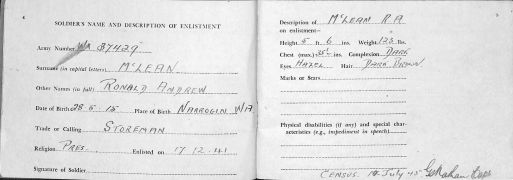 4
SOLDIER'S NAME AND DESCRIPTION OF ENLISTMENT
Army Number WX 37429
Surname (in capital letters) McLEAN
Other Names (in full) RONALD ANDREW
Date of Birth 28.6.15 Place of Birth NARROGIN, W.A.
Trade or Calling STOREMAN
Religion PRES. Enlisted on 17.12.41
Signature of Soldier
Description of McLEAN R.A
on enlistment:—
Height 5 ft. 6 ins. Weight 123 lbs.
Chest (max.) ins. Complexion DARK
Eyes HAZEL Hair DARK BROWN
Marks or Sears
Physical disabilities (if any) and special char-
acteristics (e.g., impediment in speech)
CENSUS July 45 Capt